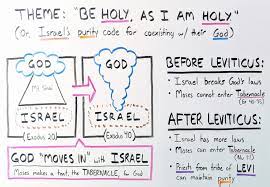 THEME: "BE HOLY AS I AM HOLY"
(Or, Israel's purity code for coexisting w/their God)
GOD
Mt. Sinai
ISRAEL
(Exodus 20)
GOD
ISRAEL
(Exodus 40)
GOD "MOVES IN" with ISRAEL
Moses makes a tent, the TABERNACLE, for God
BEFORE LEVITICUS:
• Israel breaks God's laws
• Moses cannot enter Tabernacle
AFTER LEVITICUS:
• Israel has more laws
• Moses can enter Tabernacle
• Priests from tribe of LEVI
can maintain purity